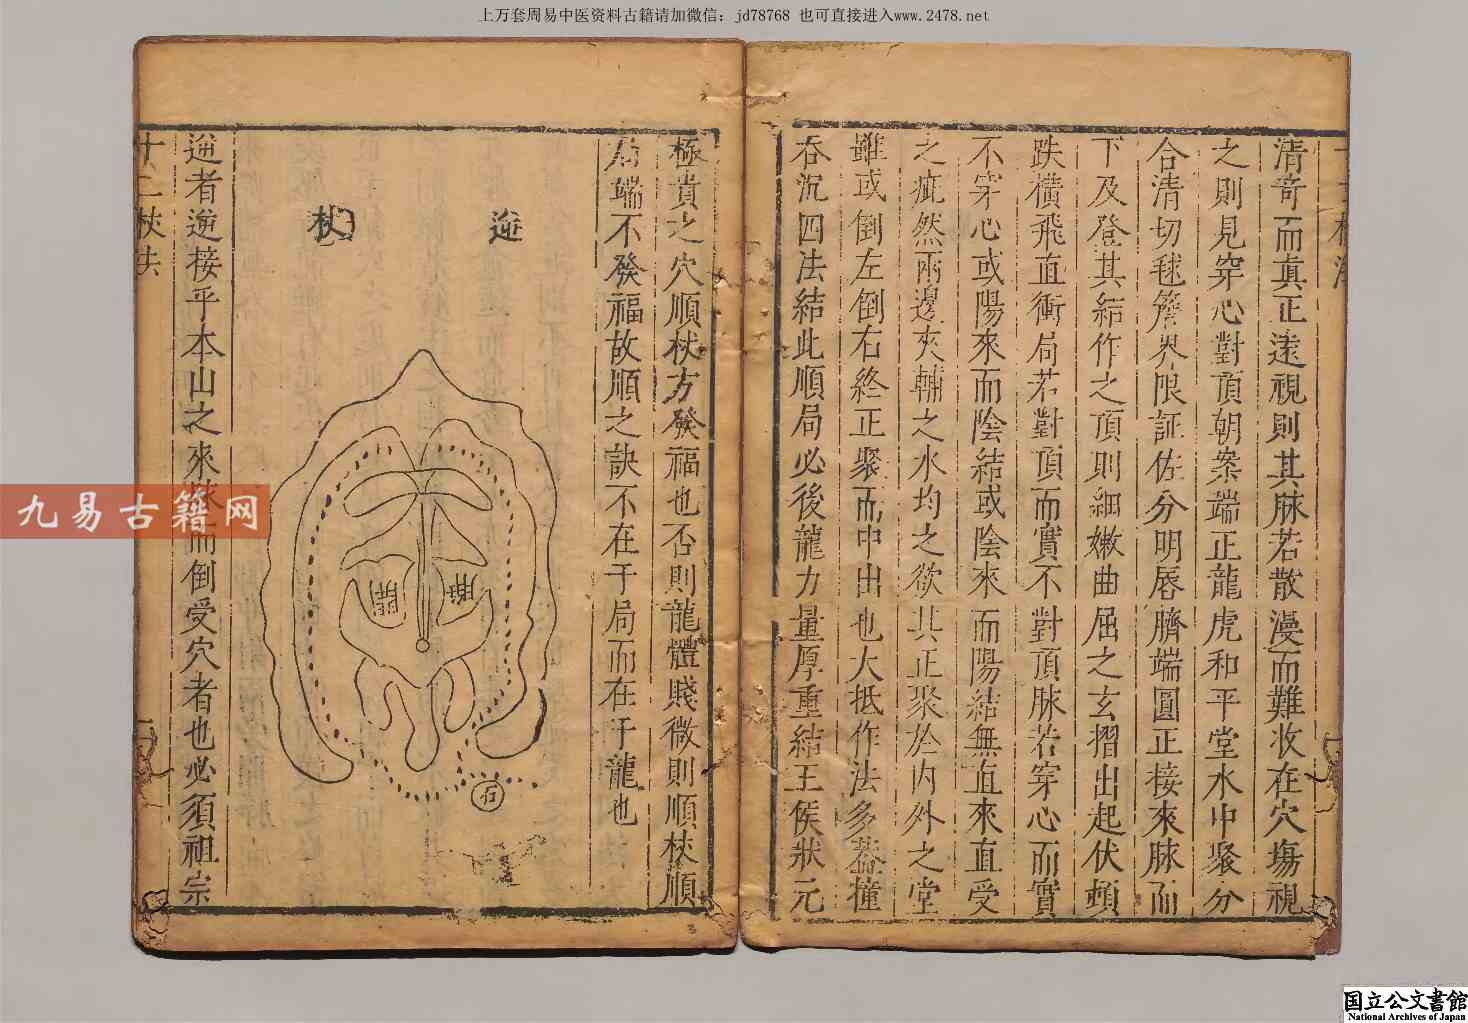 上万套周易中医资料古籍请加微信：jd78768 也可直接进入www.2478.net
清奇而真正遠視則其脉若散漫而難收在穴塲視
之則見穿心對頂朝案端正龍虎和平堂水中聚分
合清切毬簷界限証佐分明唇臍端圓正接來脉而
下及登其結作之頂則細嫩曲屈之玄摺出起伏頓
跌橫飛直衝局若對頂而實不對頂脉若穿心而實
不穿心或陽來而陰結或陰來而陽結無直來直受
之疵然兩邊夾輔之水均之欲其正聚於内外之堂
雖或倒左倒右終正聚而中出也大抵作法多葢撞
吞沉四法結此順局必後龍力量厚重結王侯狀元
極貴之穴順杖方發福也否則龍體賤微則順杖順
局端不發福故順之訣不在于局而在于龍也
逆
杖
開
麻
石
逆者逆接乎本山之來脉而倒受穴者也必須祖宗
十二杖法
九易古籍网
国立公文書館
National Archives of Japan